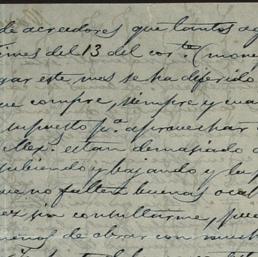 de acreedores que tantos ag
imes del 13 del corte. (mone
gar este mes se ha deferido
ue compre, siempre y cua
impuesto pa. aprovechar
Mex. estan demasiado a
subiendo y bajando y la p
ue no falten buenas ocas
ex sin consultarme, pue
menos de obrar con much